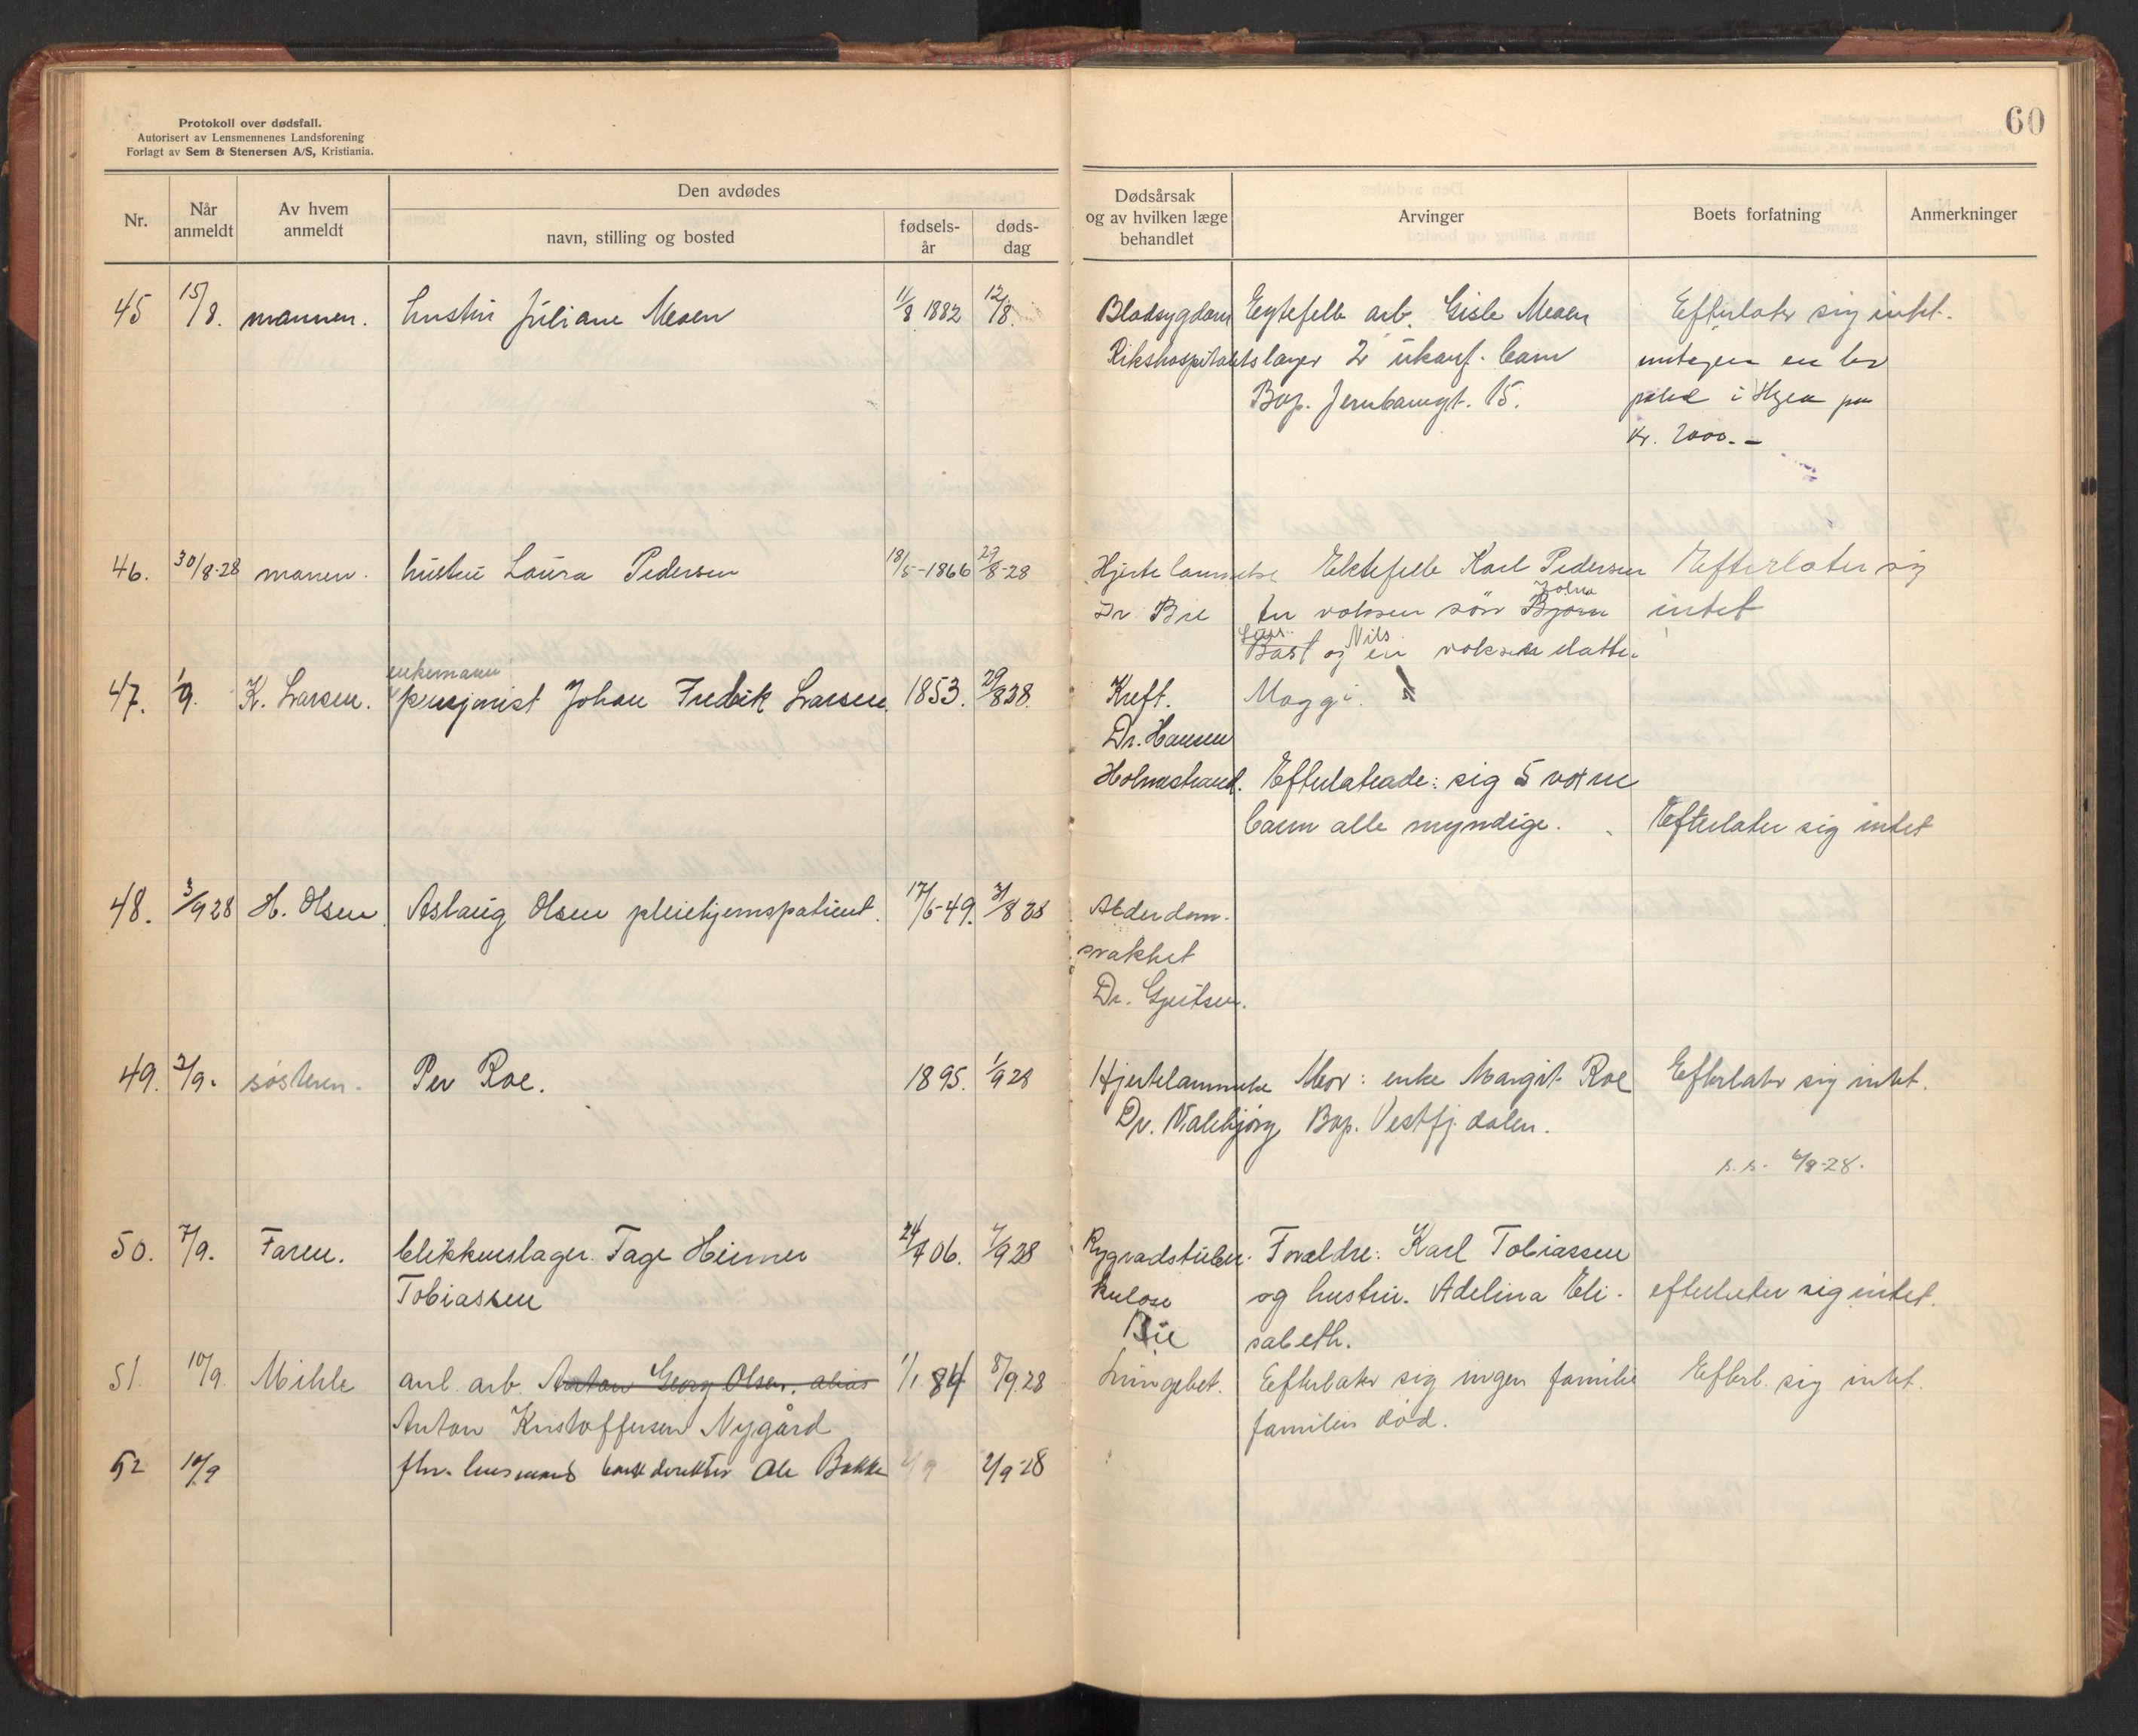 Protokoll over dødsfall.
Autorisert av Lensmennenes Landsforening
Forlagt av Sem & Stenersen A/S, Kristiania.
60
Nr.
Når anmeldt
Av hvem anmeldt
Den avdødes
navn, stilling og bosted
fødsels-år
døds-dag
Dødsårsak og av hvilken læge behandlet
Arvinger
Boets forfatning
Anmerkninger
45 15/8. mannen. hustru Juliane Moen 11/8 1882 12/8.
Blodsygdom Egtefelle arb. Gisle Moen Efterlater sig intet.
Rikshospitalets læger 2 ukonf. barn
Bop. Jernbanegt. 15.
kr. 2000.-
46. 30/8-28 manen. hustru Laura Pedersen 18/5-1866 29/8-28
Hjertelammelse Ektefelle Karl Pedersen Efterlater sig
Dr Bie En voksen sön Bjorn intet
og en voksen datter
Maggi.
47. 1/9. K. Larsen. enkemann
pensjonist Johan Fredrik Larsen. 1853. 29/8 28.
Kreft.
Dr. Hansen
Holmestrand. Efterlatende: sig 5 voxne
barn alle myndige. Efterlater sig intet
48. 3/9 28 H. Olsen. Aslaug Olsen pleiehjemspatient. 17/6-49. 31/8 28
Alderdom-
svakhet
Dr. Gjeitsen.
49. 2/9. søsteren. Per Roe. 1895. 1/9 28
Hjertelammelse Mor: enke Margit Roe Efterlater sig intet.
Dr. Valebjörg Bop. Vestfj.dalen.
s.s. 6/9-28.
50. 7/9. Faren. blikkenslager. Tage Heimer 24/7 06. 7/9 28
Tobiassen
Rygradstuber-
kulose
Bie
Forældre: Karl Tobiassen
og hustru. Adelina Eli-
sabeth.
efterlater sig intet.
51. 10/9. Mihle anl. arb. Anton Georg Olsen, alias 1/1 84 8/9.28
Anton Kristoffersen Nygård
Lungebet. Efterlater sig ingen familie Efterl. sig intet.
familien död.
52 10/9 fhv. lensmand bankdirektör Ole Bakke 2/9-28